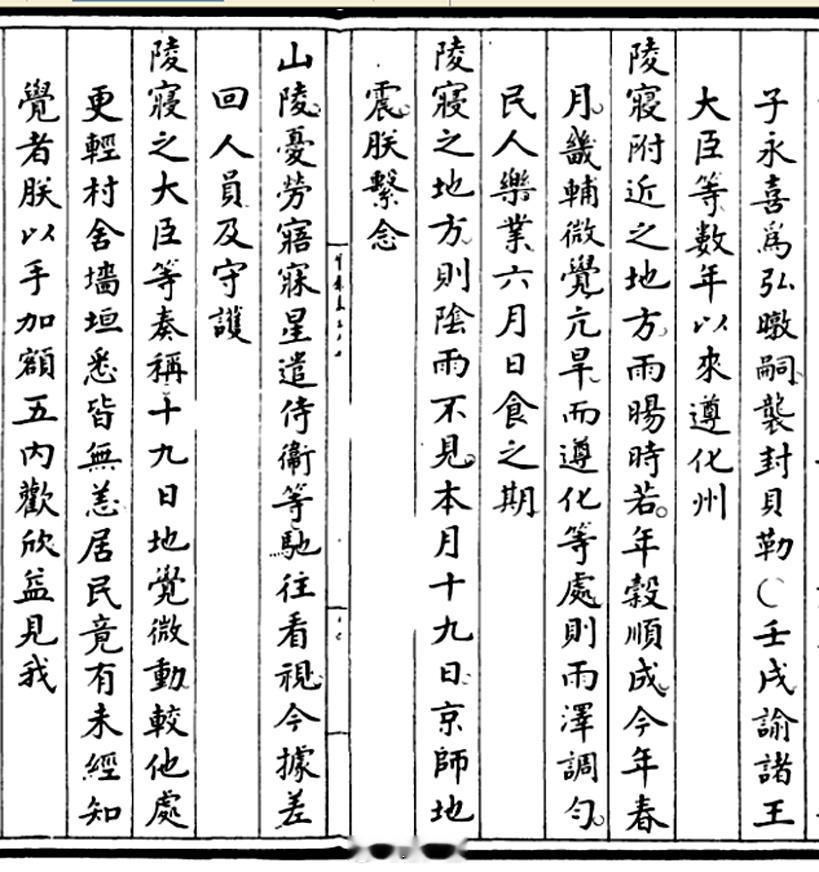 子永喜爲弘暾嗣。襲封貝勒〇壬戌諭諸王
大臣等數年以來遵化州
陵寢附近之地方。雨暘時若。年穀順成。今年春
月。畿輔微覺亢旱。而遵化等處。則雨澤調勻。
民人樂業。六月日食之期
陵寢之地方。則陰雨不見。本月十九日。京師地
震。朕繫念
山陵。憂勞寤寐。星遣侍衞等馳往看視。今據差
回人員及守護
陵寢之大臣等奏稱。十九日地覺微動。較他處
更輕。村舍墻垣。悉皆無恙。居民竟有未經知
覺者。朕以手加額。五內歡欣。益見我